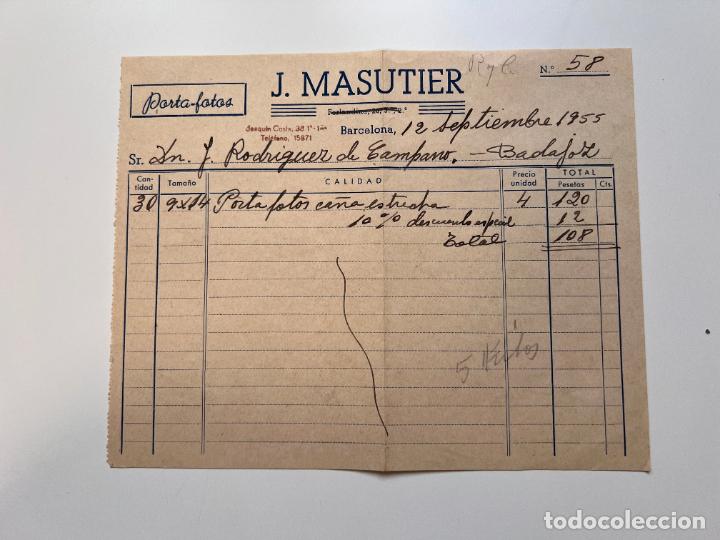 Porta-fotos
J. MASUTIER
N.º 58
Joaquín Costa, 38 1º-1ª
Teléfono, 15871
Barcelona, 12 Septiembre 1955
Sr. Dn. J. Rodriguez de Campano. - Badajoz
Cantidad Tamaño CALIDAD Precio unidad TOTAL Pesetas Cts.
30 9x14 Porta fotos caña estrecha 4 120
10% descuento especial 12
Total 108
5 Kilos
todocoleccion
todocoleccion.net